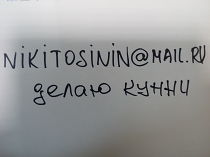 NIKITOSININ@MAIL.RU
делаю куннии